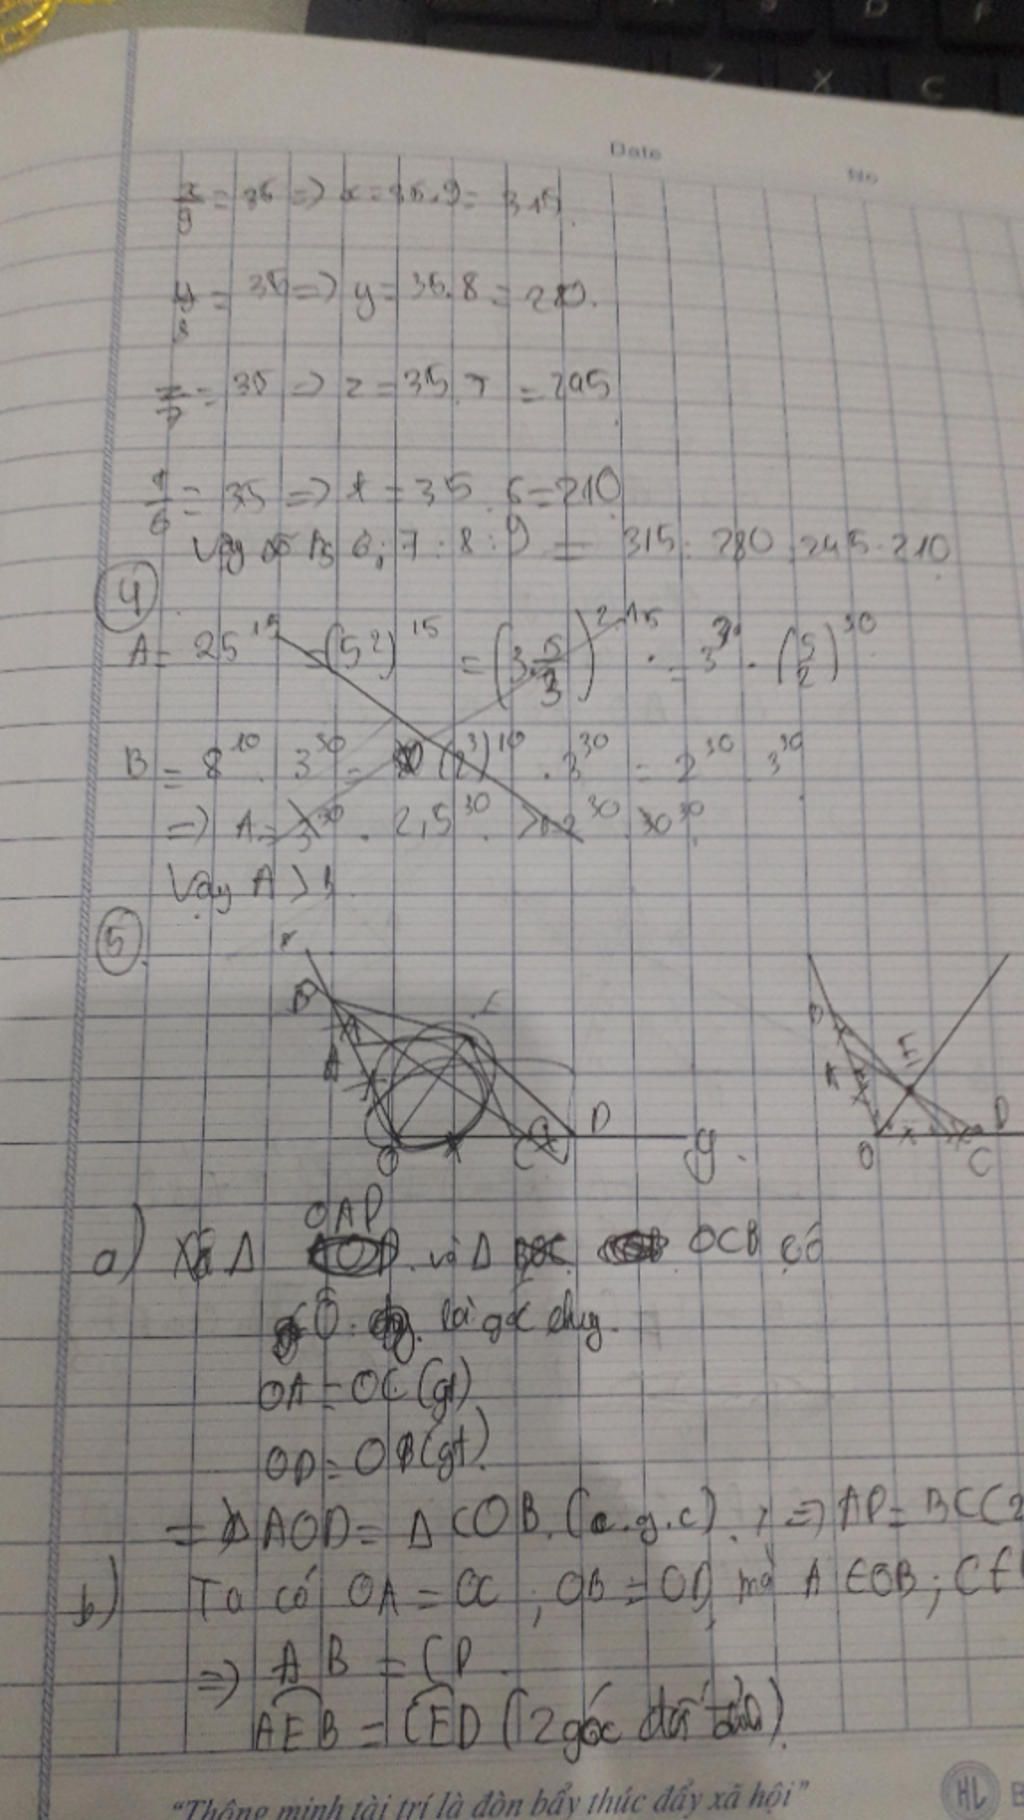 Date
No
x/9 = 35 => x = 35.9 = 315.
y/8 = 35 => y = 35.8 = 280.
z/7 = 35 => z = 35.7 = 245
t/6 = 35 => t = 35.6 = 210
Vậy 6; 7 : 8 : 9 = 315 : 280 : 245 : 210
4
A = 25^15 = (5^2)^15 = (3.5/3)^2.15 = 3^30 . (5/2)^30
B = 8^10 . 3^30 = (2^3)^10 . 3^30 = 2^30 . 3^30
=> A = 3^30 . 2,5^30 > 2^30 . 30^30
Vậy A > B
5
x
B E D
A E
A
O C D y
O C D
a) Xét Δ OAD và Δ OCB có
Ô là góc chug.
OA = OC (gt)
OD = OB (gt)
=> Δ AOD = Δ COB (c.g.c) => AD = BC (2
b) Ta có OA = OC ; OB = OD, mà A ∈ OB ; C ∈
=> AB = CD
AEB = CED (2 góc đối đỉnh).
"Thông minh tài trí là đòn bẩy thúc đẩy xã hội"
HL